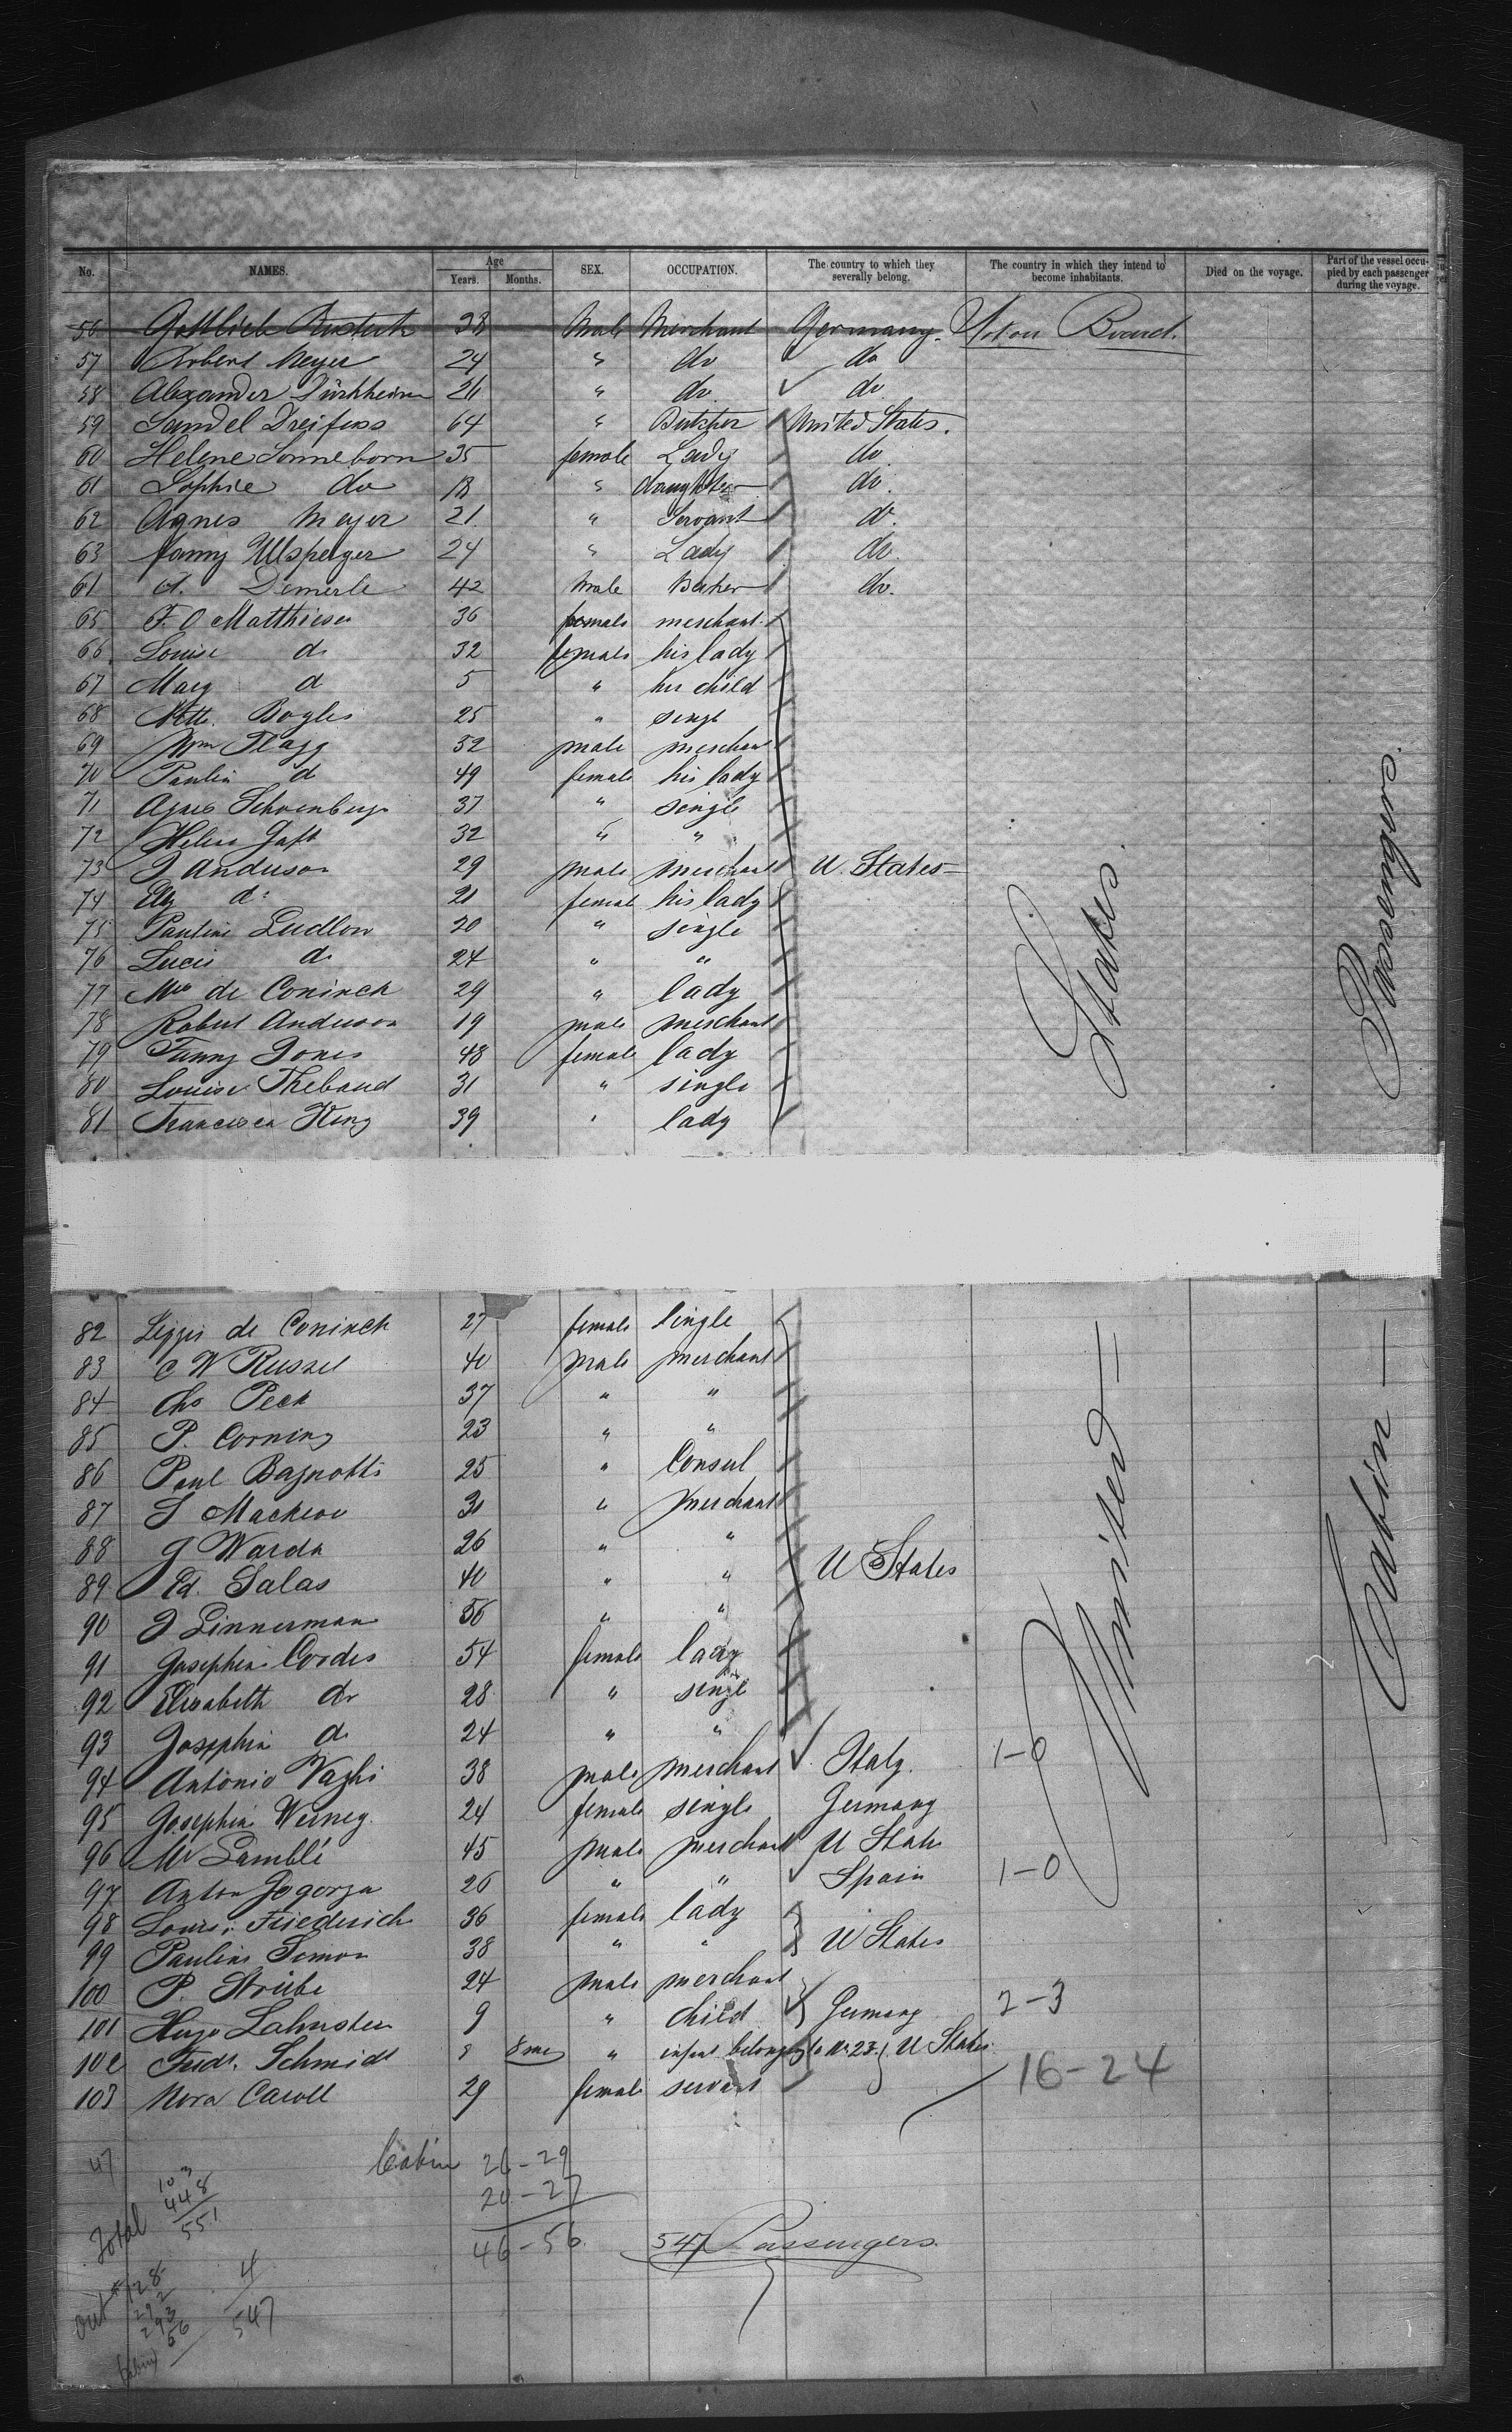 No. NAMES. Age Years. Months. SEX. OCCUPATION. The country to which they severally belong. The country in which they intend to become inhabitants. Died on the voyage. Part of the vessel occupied by each passenger during the voyage.
56 Gottlieb 28 Male Merchant Germany. Not on Board.
57 Robert Meyer 24 " do do
58 Alexander Dürkheim " do do
59 Sandel Dreifuss 64 " Butcher United States.
60 Helene Sonneborn 35 female Lady do
61 Sophie do 18 " daughter do.
62 Agnes Meyer 21 " Servant d.
63 Fanny Ulsperger 24 " Lady do.
61 A. Demerle 42 Male Baker do.
65 F. O Matthiesen 36 male merchant
66 Louise d. 32 female his lady
67 Mary d 5 " her child
68 Bogles 25 " singl
69 Wm Flagg 52 male merchant
70 Paulin d 49 female his lady
71 Agnes Schoenberg 37 " single
72 Helen Gaft 32 " "
73 J Anderson 29 male merchant U. States
74 Ely d: 21 female his lady
75 Pauline Ludlow 20 " single
76 Lucie d. 24 " "
77 Mrs de Coninck 29 " lady
78 Robert Anderson 19 male merchant
79 Fanny Jones 48 female lady
80 Louise Thebaud 31 " single
81 Francisca King 39 " lady
82 Lizzie de Coninck 27 female single
83 C W Russel 40 male merchant
84 Chs Peck 37 " "
85 P. Corning 23 " "
86 Paul Bagnotti 25 " Consul
87 S Mackeow 31 " merchant
88 J Warda 26 " "
89 Ed. Salas 40 " " U States
90 J Linnerman 56 " "
91 Josephin Cordes 54 female lady
92 Elisabeth do 28 " singl
93 Josephin d. 24 " "
94 Antonio Vaghi 38 male merchant Italy. 1-0
95 Josephine Werney 24 female single Germany
96 Mr Lamblé 45 male merchant U State
97 Anton Jogorza 26 " " Spain 1-0
98 Louise Friederich 36 female lady
99 Pauline Simon 38 " " U States
100 P. Strube 24 male merchant
101 Hugo Lahnsten 9 " child Germany 2-3
102 Fridr. Schmidt 8 8 mo " infant belongs to No 23. U States
103 Nora Caroll 29 female servant 16-24
United States.
Cabin Passengers.
47 Cabin 26-29
20-27
46-56
547 Passengers.
Total 103
448
551
4
547
out 128
292
293
56
Cabin